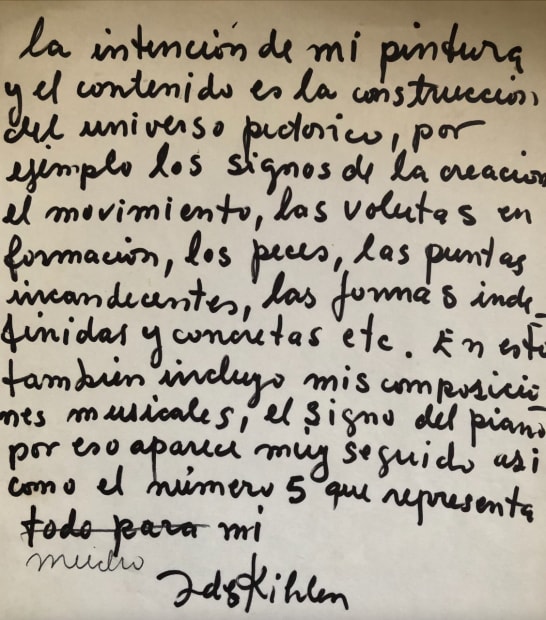 la intención de mi pintura
y el contenido es la construccion
del universo pictorico, por
ejemplo los signos de la creacion
el movimiento, las volutas en
formacion, los peces, las puntas
incandecentes, las formas inde_
finidas y concretas etc. En esto
tambien incluyo mis composicio_
nes musicales, el signo del piano
por eso aparece muy seguido asi
como el número 5 que representa
todo para mi
mucho
Ides Kihlen